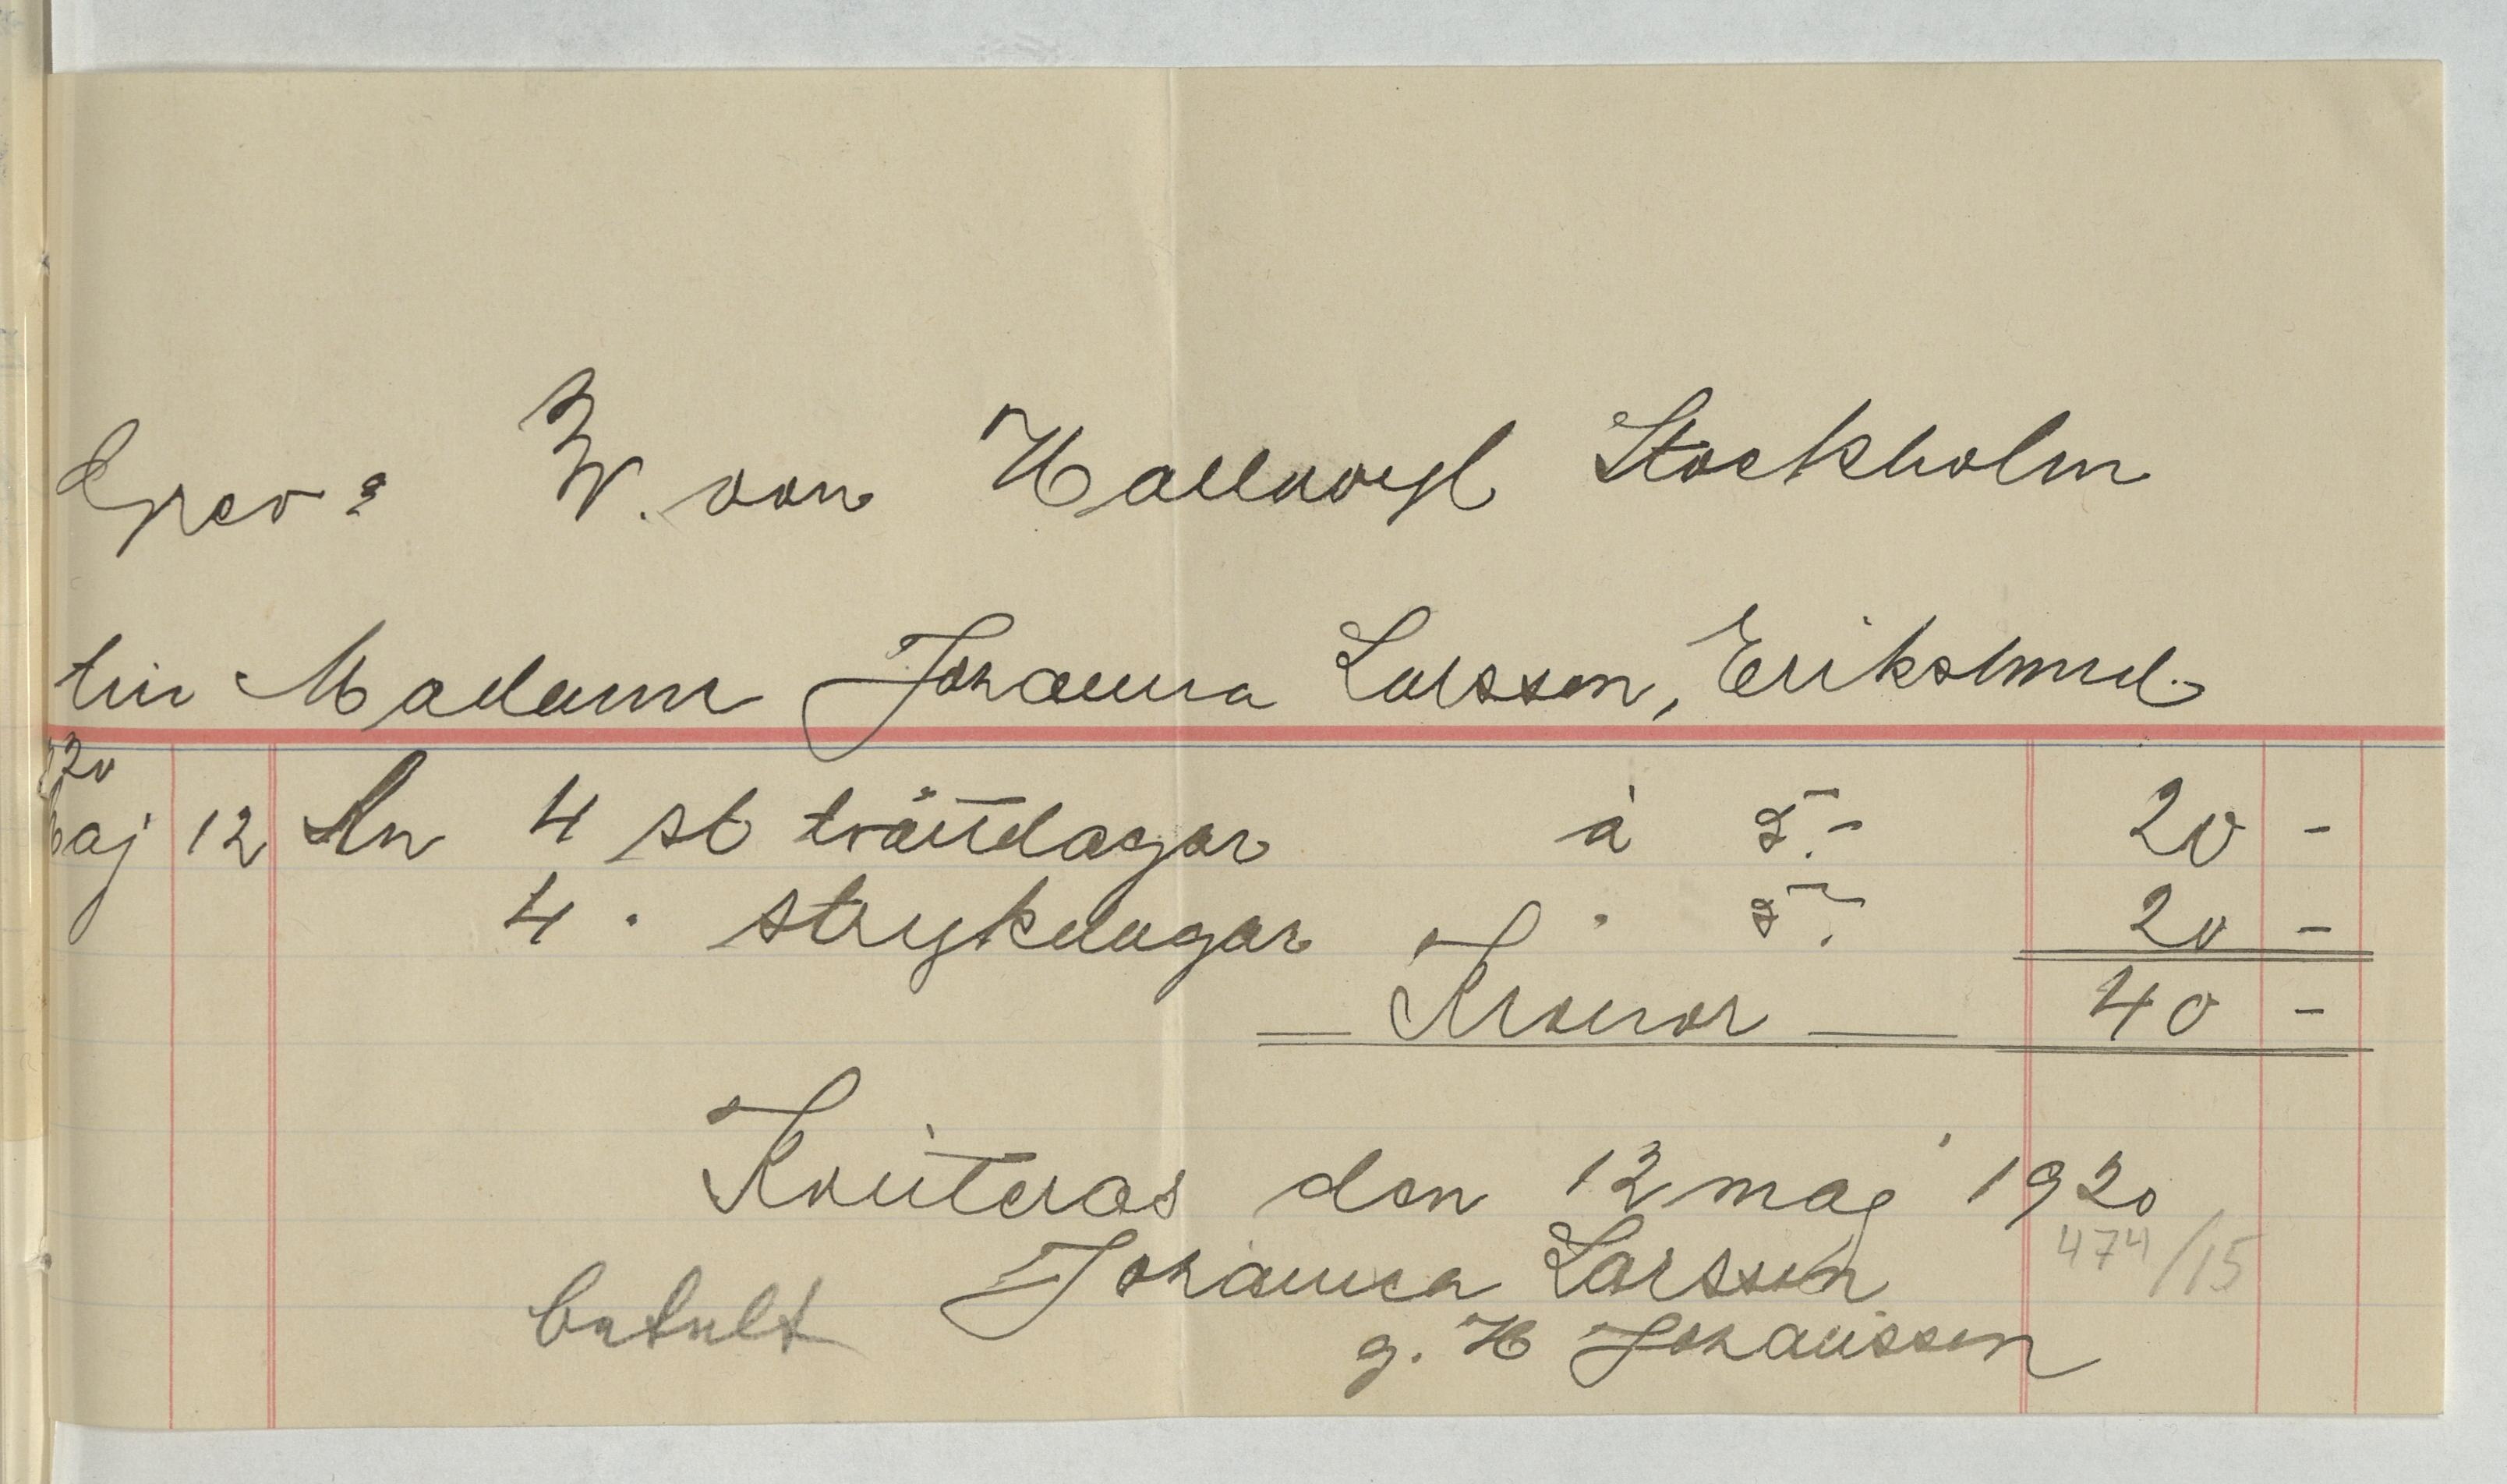 Grev: W. von Hallwyl Stockholm
till Madam Johanna Larsson, Erikslund
20
Maj 12 An 4 st tvättdagar à 5.- 20 -
4 " strykdagar " 5.- 20 -
Kronor 40 -
den 12 maj 1920
474/15
Johanna Larsson
betalt
g. H Johansson